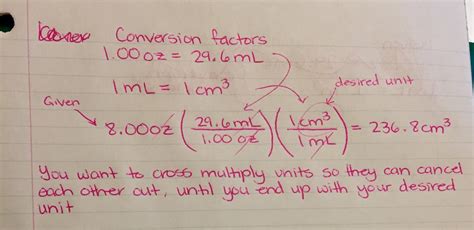 Conversion factors
1.00 oz = 29.6 mL
1 mL = 1 cm³
desired unit
Given
8.00oz (29.6mL / 1.00 oz) (1cm³ / 1mL) = 236.8cm³
You want to cross multiply units so they can cancel
each other out, until you end up with your desired
unit